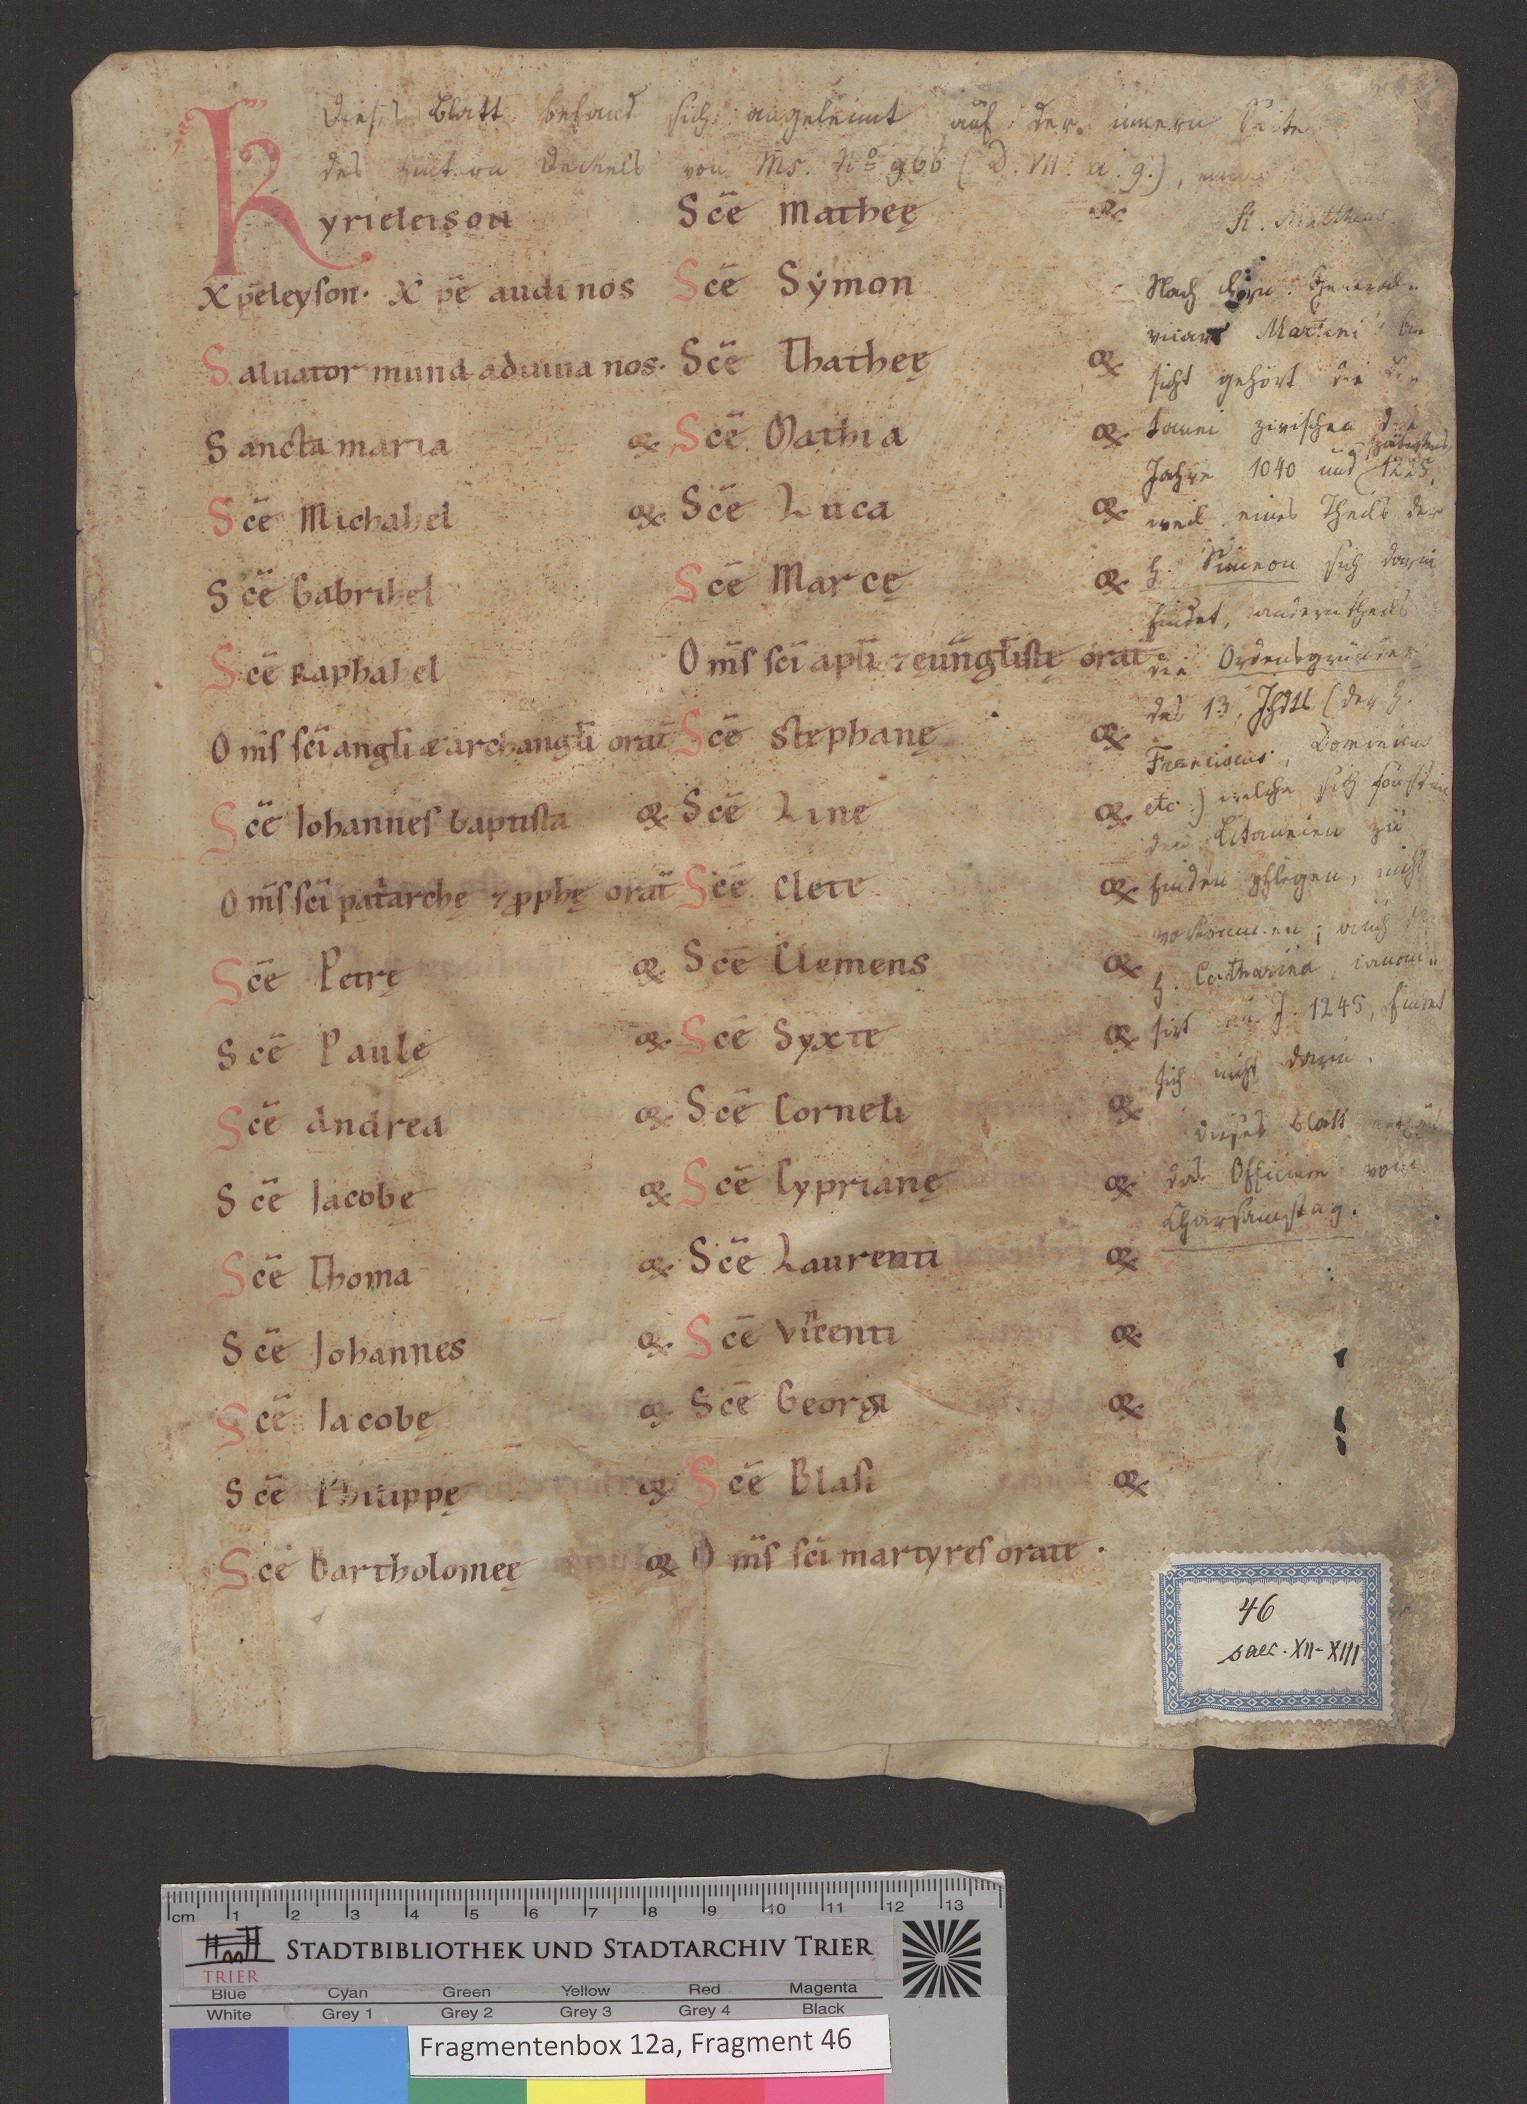 Dieses Blatt befand sich angeleimt auf der innern Seite
des hintern Deckels von Ms. No 966 (D. VII. a. 9.),
St. Mattheus.
Kyrieleison
Xp̄eleyson. Xp̄e audi nos
Saluator mundi adiuua nos.
Sancta maria or.
Sc̄e Michahel or.
Sc̄e Gabrihel
Sc̄e Raphahel
Om̄s sc̄i angl̄i & archangl̄i orat̄
Sc̄e Iohannes baptista or.
Om̄s sc̄i pat̄arche ⁊ ꝓphę orat̄
Sc̄e Petrę or.
Sc̄e Paulę or.
Sc̄e Andrea or.
Sc̄e Iacobę or.
Sc̄e Thoma or.
Sc̄e Iohannes or.
Sc̄e Iacobę or.
Sc̄e Philippę or.
Sc̄e Bartholomeę or.
Sc̄e Matheę or.
Sc̄e Sẏmon
Sc̄e Thatheę or.
Sc̄e Mathia or.
Sc̄e Luca or.
Sc̄e Marcę or.
Om̄s sc̄i apl̄i ⁊ eūngl̄istę orat̄
Sc̄e Stephanę or.
Sc̄e Line or.
Sc̄e Clete or.
Sc̄e Clemens or.
Sc̄e Syxte or.
Sc̄e Corneli or.
Sc̄e Cyprianę or.
Sc̄e Laurenti or.
Sc̄e Vincenti or.
Sc̄e Georgi or.
Sc̄e Blasi or.
Om̄s sc̄i martyres orate.
Nach Hrn. General-
vicars Martini An
sicht gehört die Li-
tanei zwischen die
Jahre 1040 und spätestens 1225,
weil eines Theils der
h. Simeon sich darin
findet, anderntheils
die Ordensgründer
des 13. Jhdts (der h.
Franciscus, Dominicus
etc.) welche sich sonst in
den Litaneien zu
finden pflegen, nicht
vorkommen; auch die
h. Catharina, canoni-
sirt im J. 1245, findet
sich nicht darin.
Dieses Blatt enthält
das Officium vom
Charsamstag.
46
saec. XII-XIII
cm 1 2 3 4 5 6 7 8 9 10 11 12 13
TRIER
STADTBIBLIOTHEK UND STADTARCHIV TRIER
Blue Cyan Green Yellow Red Magenta
White Grey 1 Grey 2 Grey 3 Grey 4 Black
Fragmentenbox 12a, Fragment 46